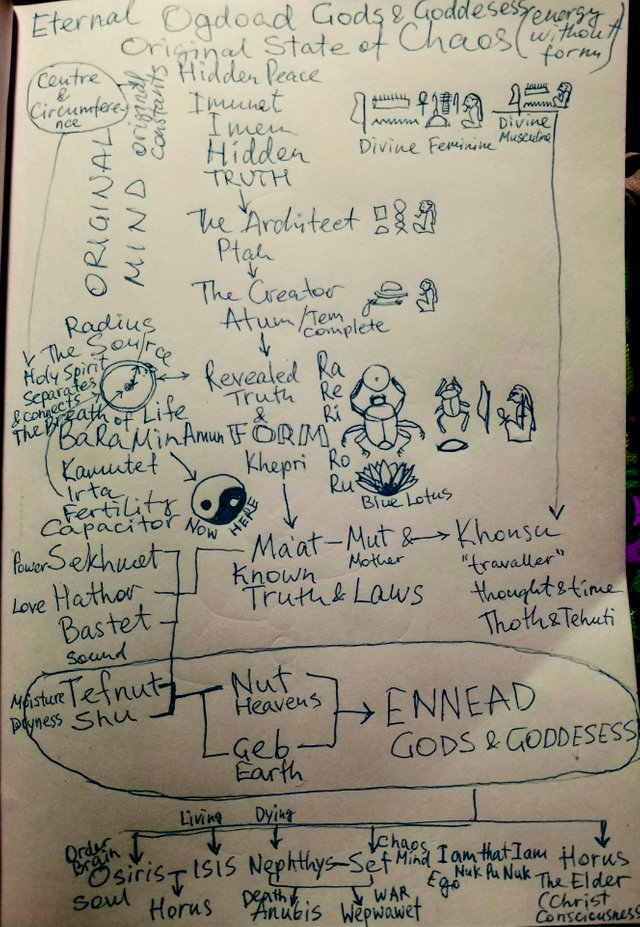 Eternal Ogdoad Gods & Goddesess
Original State of Chaos (energy without form)
Centre
&
Circumfere-
nce
ORIGINAL
MIND
Originall
Constants
Hidden Peace
Imunet
Imen
Hidden
TRUTH
Divine Feminine
Divine
Musculine
The Architect
Ptah
The Creator
Atum/Tem
complete
Radius
The Source
Holy Spirit
Separates
& connects
The Breath of Life
Revealed
Truth
&
FORM
Khepri
Ra
Re
Ri
Ro
Ru
Blue Lotus
BaRaMin Amun
Kamutet
Irta
Fertility
Capacitor
NOW HERE
Ma'at – Mut &
Mother
Known
Truth & Laws
Khonsu
"travaller"
thought & time
Thoth & Tehuti
Power Sekhmet
Love Hathor
Bastet
Sound
Moisture Tefnut
Dryness Shu
Nut
Heavens
Geb
Earth
ENNEAD
GODS & GODDESESS
Living Dying
Order
Brain
Osiris
Soul
Horus
ISIS
Nephthys – Set
Chaos
Mind
Death
Anubis
WAR
Wepwawet
I am that I am
Nuk Pu Nuk
Ego
Horus
The Elder
(Christ
Consciousness